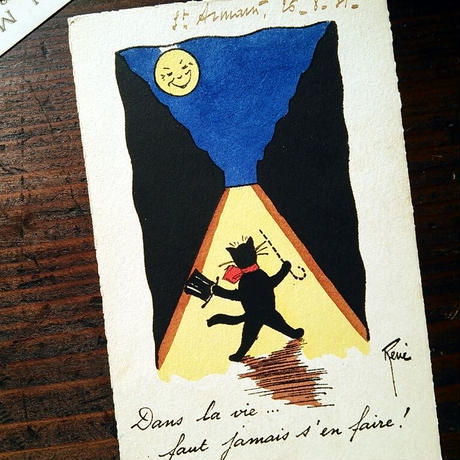 St Amand, 26_8_31_
René
Dans la vie...
faut jamais s'en faire!
M